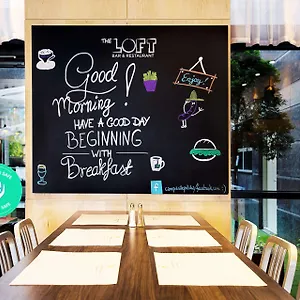 THE LOFT
BAR & RESTAURANT
Good
Morning!
HAVE A GOOD DAY
BEGINNING
WITH
Breakfast
Enjoy!